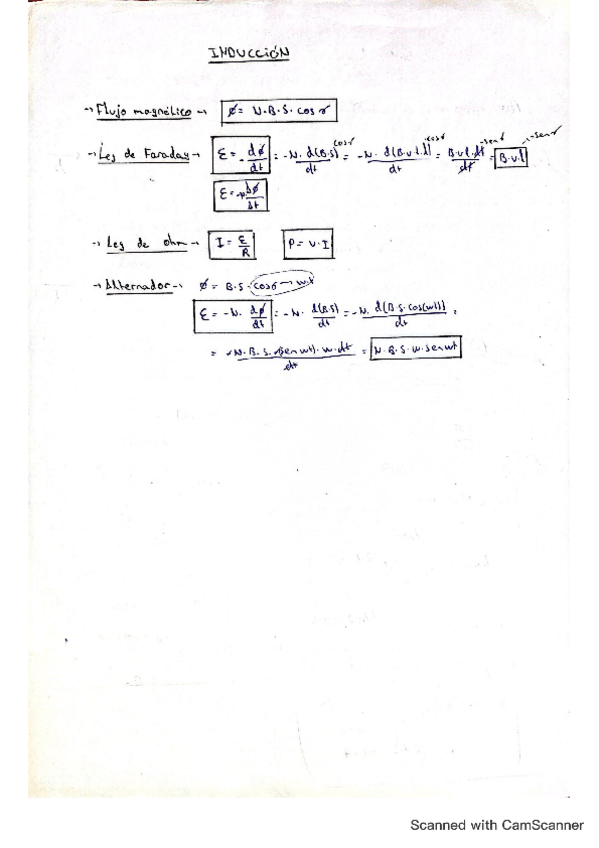 INDUCCIÓN
→ Flujo magnético → φ = N·B·S·cos γ
→ Ley de Faraday → ε = -dφ/dt = -N·d(B·S)/dt cos γ = -N·d(B·v·t·l)/dt cos γ = B·v·l·dt/dt -sen γ = B·v·l -sen γ
Δφ/Δt
→ Ley de ohm → I = ε/R P = V·I
→ Alternador → φ = B·S·cos γ → w·t
ε = -N·dφ/dt = -N·d(B·S)/dt = -N·d(B·S·cos(wt))/dt =
= N·B·S·(sen wt)·w·dt/dt = N·B·S·w·sen wt
Scanned with CamScanner